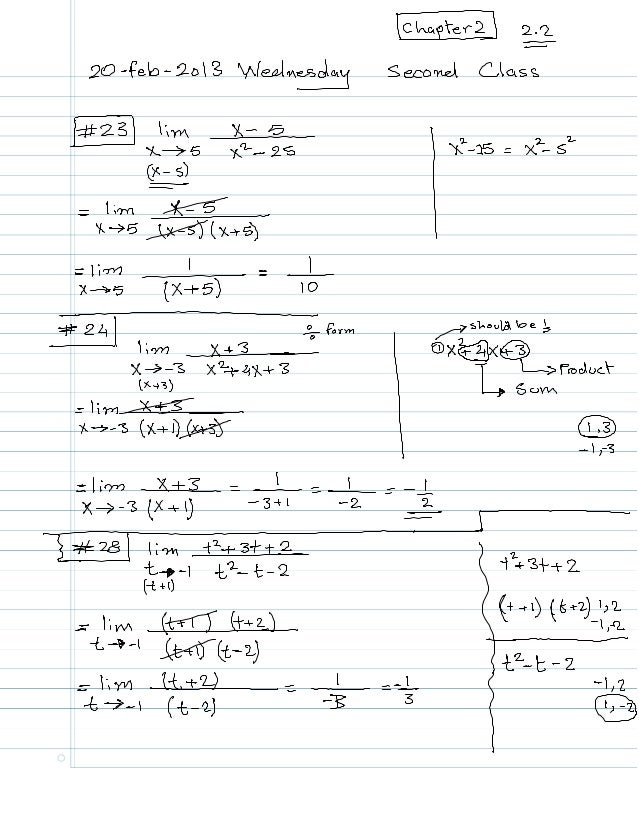 Chapter 2 2.2
20-feb-2013 Wednesday Second Class
#23 lim x→5 (x-5) x-5 / x²-25
x²-25 = x²-5²
= lim x→5 x-5 / (x-5)(x+5)
= lim x→5 1 / (x+5) = 1/10
#24 0/0 form
lim x→-3 (x+3) x+3 / x²+4x+3
should be 1
1x²+4x+3
Product
Sum
1,3
-1,-3
= lim x→-3 x+3 / (x+1)(x+3)
= lim x→-3 x+3 / (x+1) = 1/-3+1 = 1/-2 = -1/2
#28 lim t→-1 (t+1) t²+3t+2 / t²-t-2
t²+3t+2
(t+1)(t+2) 1,2
-1,-2
= lim t→-1 (t+1)(t+2) / (t+1)(t-2)
t²-t-2
-1,2
1,-2
= lim t→-1 (t+2) / (t-2) = 1/-3 = -1/3